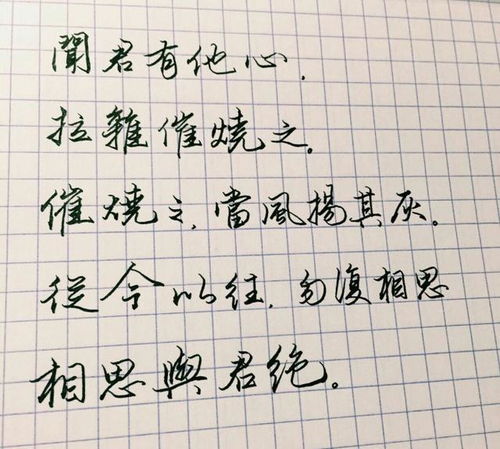 聞君有他心,
拉雜催燒之。
催燒之,當風揚其灰。
從今以往,勿復相思
相思與君絕。